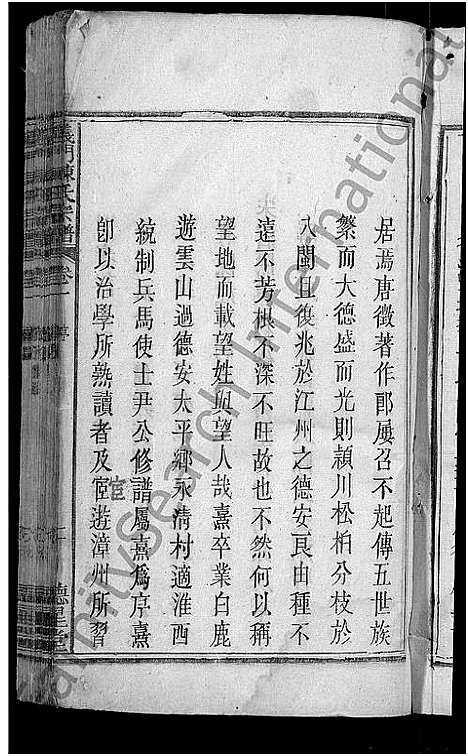 居焉唐徵著作郎屢召不起傳五世族
繁而大德盛而光則頴川松柏分枝於
八閩且復兆於江州之德安良由種不
遠不芳根不深不旺故也不然何以稱
望地而載望姓與望人哉熹卒業白鹿
遊雲山過德安太平鄉永清村適淮西
統制兵馬使士尹公修譜屬熹為序熹
卽以治學所熟讀者及宦遊漳州所習
宦
義門陳氏宗譜 卷一
德星堂
FamilySearch International